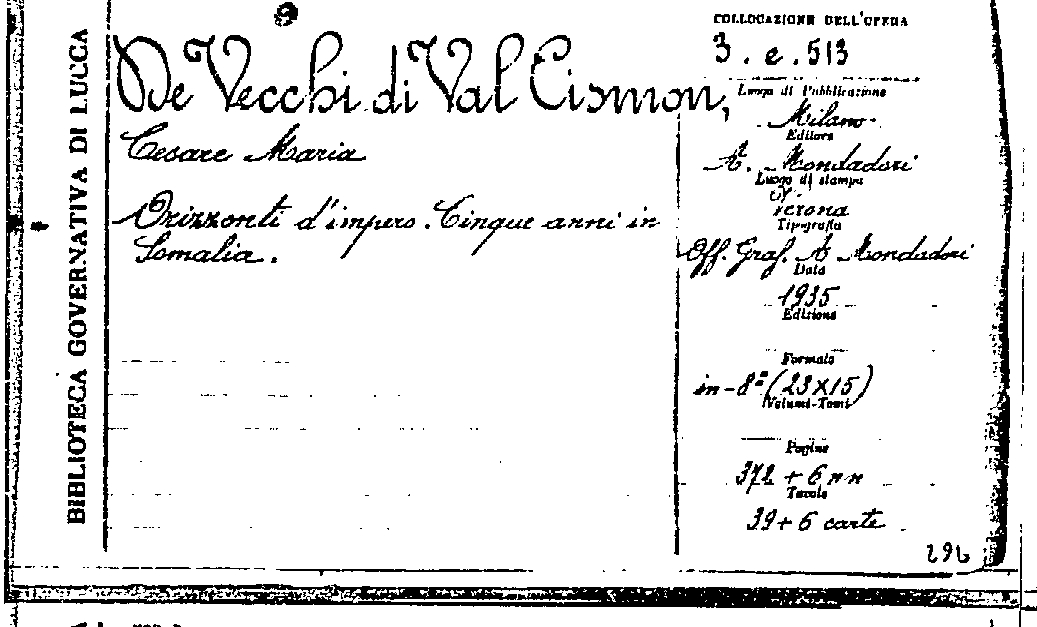 BIBLIOTECA GOVERNATIVA DI LUCCA
De Vecchi di Val Cismon,
Cesare Maria
Orizzonti d'impero. Cinque anni in
Somalia.
COLLOCAZIONE DELL'OPERA
3. e. 513
Luogo di Pubblicazione
Milano
Editore
A. Mondadori
Luogo di stampa
Verona
Tipografia
Off. Graf. A Mondadori
Data
1935
Edizione
Formato
in-8º (23X15)
Volumi-Tomi
Pagine
372 + 6 nn
Tavole
39+6 carte
296